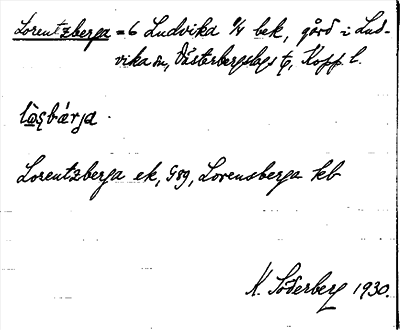 Lorentzberga = 6 Ludvika 9/4 bek, gård i Lud-
vika sn, Västerbergslags tg, Kopp. l.
Lorentzberga ek, G89, Lorensberga kb
K. Söderberg 1930.